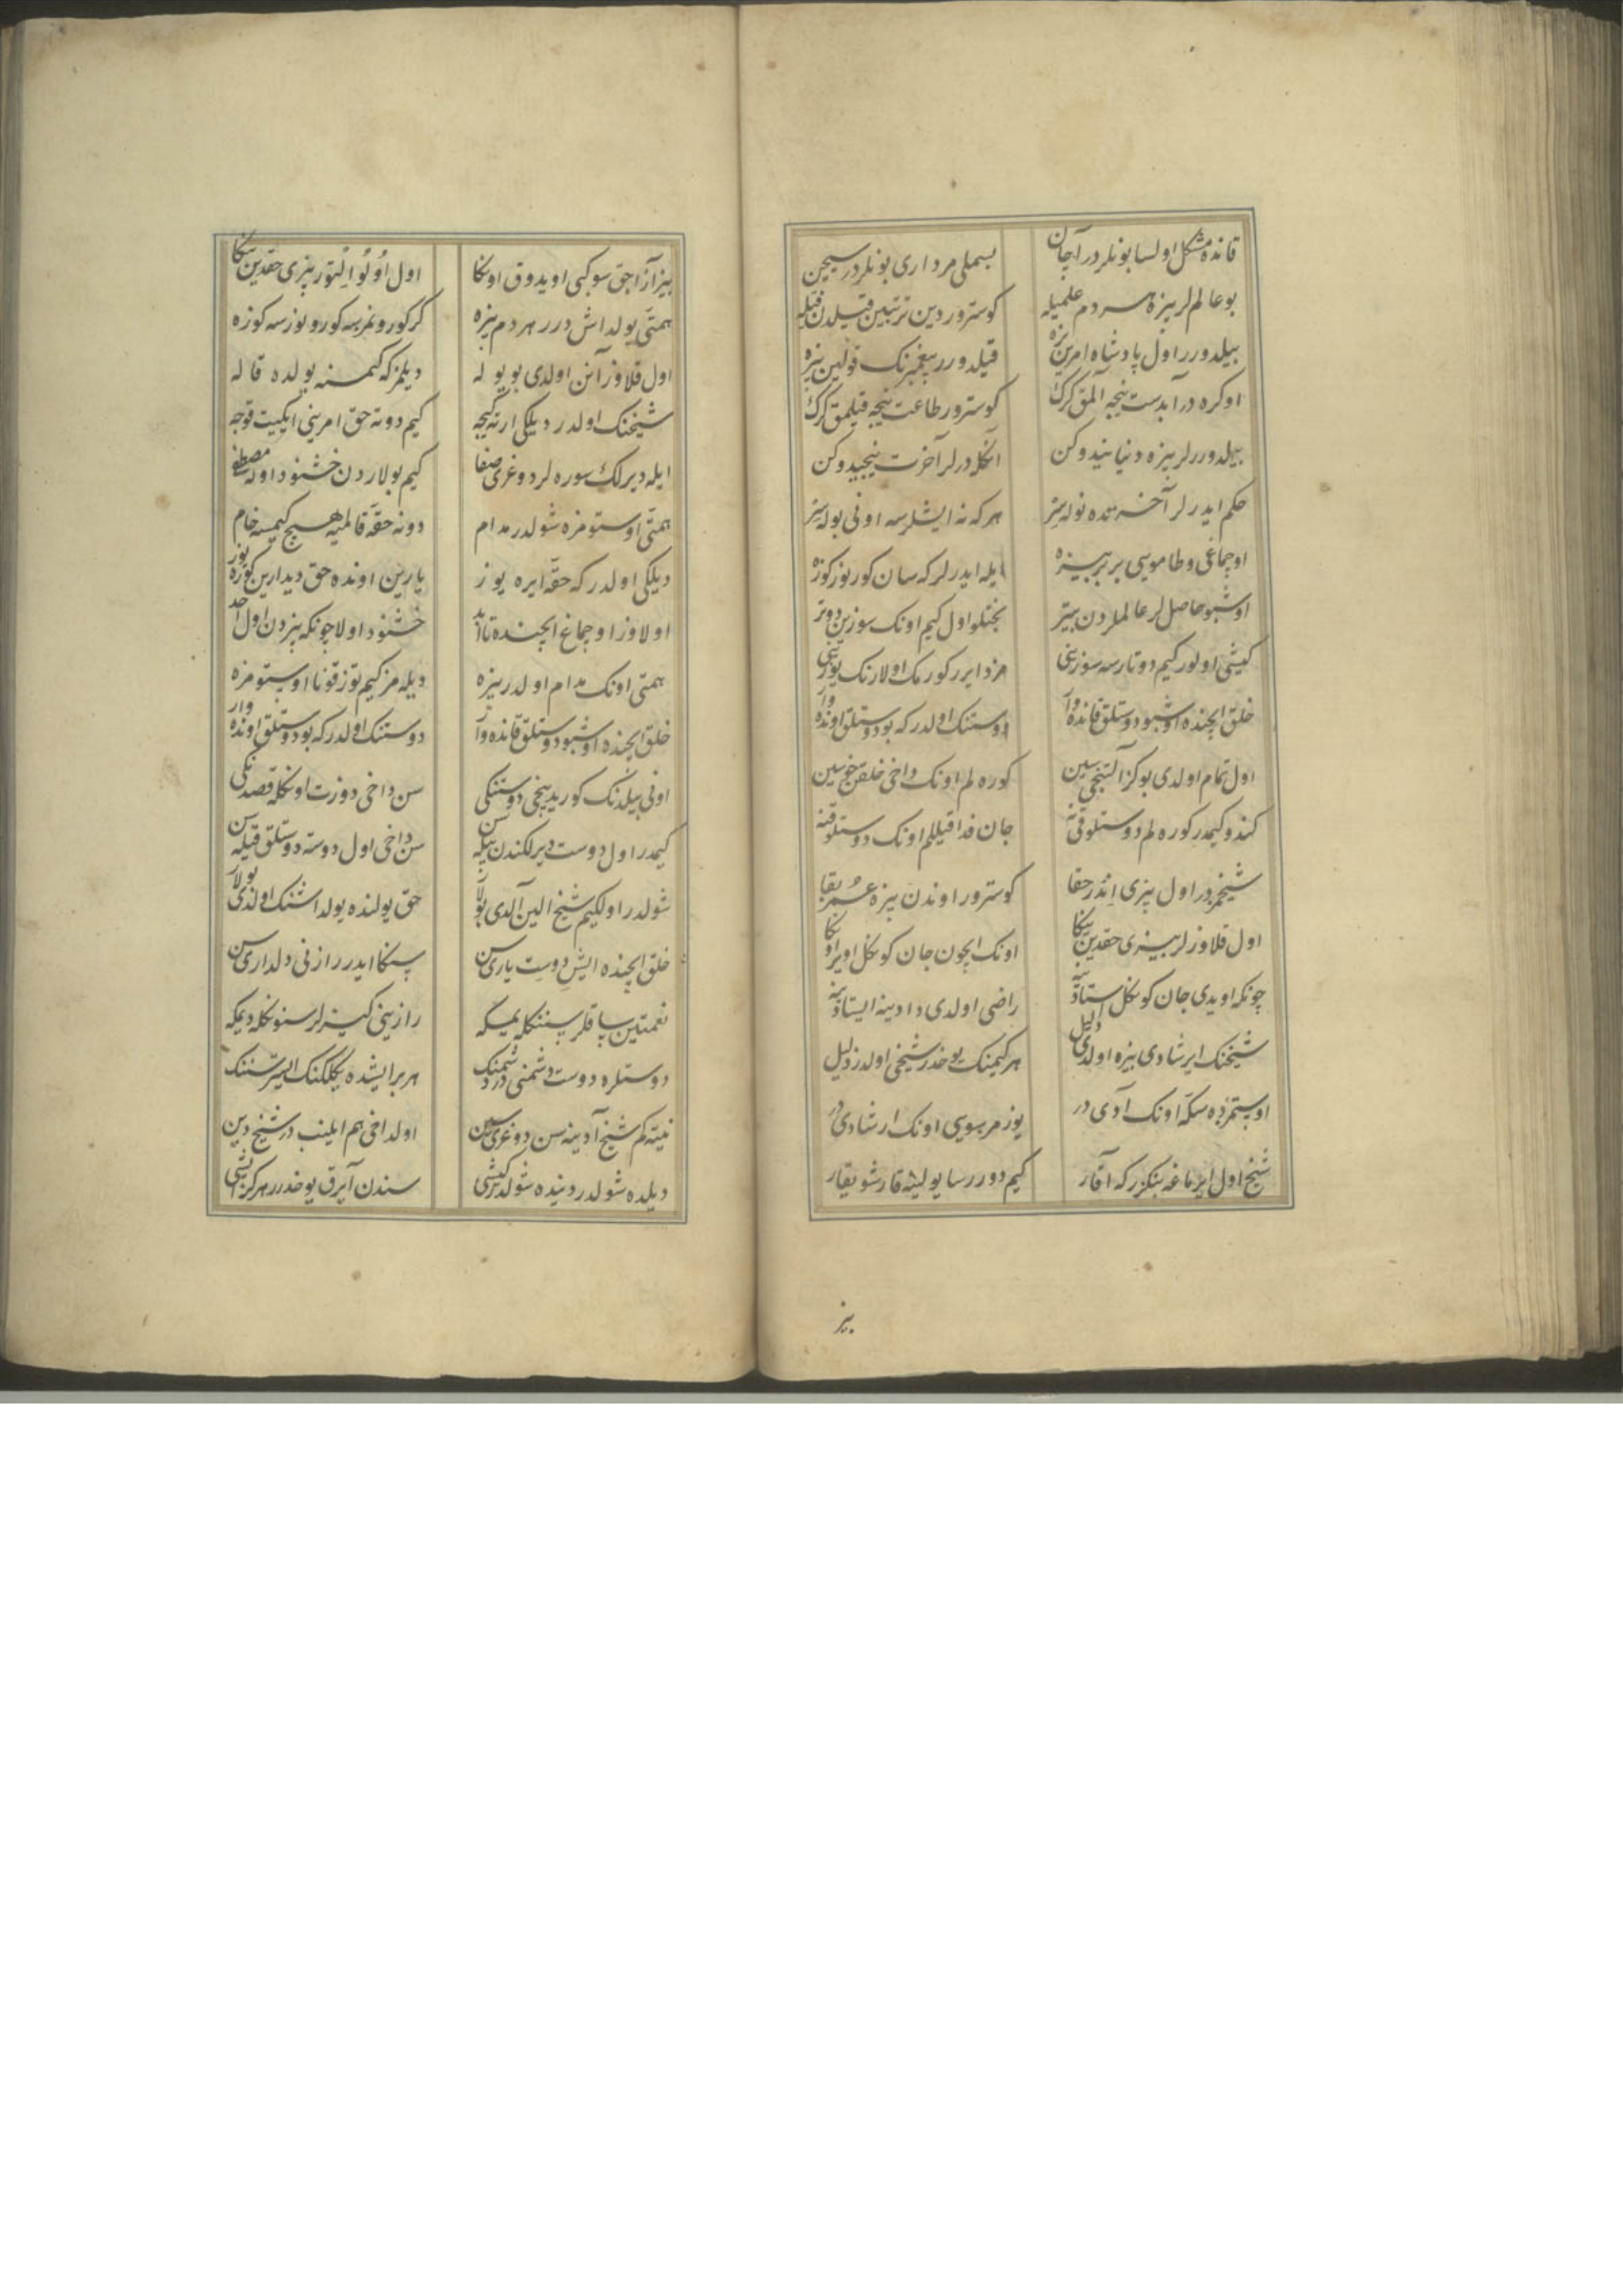 قانده مشکل اولسا بونلردر آچان بسملی مرداری بونلردر سیچن
بو عالملر بیزه هر دم علمیله کوسترور دین ترتبین قیلدن قیله
بیلدورر اول پادشاه امرین بزه قیلدورر پیغمبرنک قولین بزه
اوکره در آبدست نیجه المق کرک کوسترور طاعت نیجه قیلمق کرک
بیلدوررلر بیزه دنیا نیدوکن آنکلدرلر آخرت نیجیدوکن
حکم ایدرلر آخرتده نوله بیتر هرکه نه ایشلرسه اونی بوله بیتر
اوچماغی و طامویی بر بر بیزه ایله ایدرلر که سان کورنور کوزه
اوشبو حاصللر عالملردن بیتر بختلو اول کیم اونک سوزین دوتر
کیشی اولور کیم دوتارسه سوزینی مزد ایرر کورمک اولارنک یوزینی
خلق ایچنده اوشبو دوستلق قانده وار دوستنک اولدر که بو دوستلق اونده وار
اول تمام اولدی بو کز آلتنجیسین کوره لم اونک داخی خلقن خویسین
کندو کیمدر کوره لم دوستلوقی نه جان فدا قیللم اونک دوستلوقنه
شیخمزدر اول بزی ایندر حقا کوسترور اوندن بیزه عمر بقا
اول قلاوزلر بیزی حقدین ینکا اونک ایچون جان کونکل اویر اونکا
چونکه اویدی جان کونکل استادینه راضی اولدی دادینه ایستادینه
شیخنک ایرشادی بیزه اولدی دلیل هر کیمنک یوخدر شیخی اولدر ذلیل
اوستمزده سکه اونک آدی در یوزمز سویی اونک ارشادی در
شیخ اول ایرماغه بنکزر که آقار کیم دوررسا یولینه قارشو یقار
بیز
بیز آزاجق سو کبی اویدوق اونکا اول اولو ایلتور بزی حقدین ینکا
همتی یولداش درر هر دم بزه کر کورونمزسه کورونورسه کوزه
اول قلاوز آنن اولدی بو یوله دیلمز که کیمسنه یولده قاله
شیخنک اولدر دیلکی ارته کیجه کیم دوته حق امرینی ایکیت قوجه
ایله دیرلک سوره لر دوغری صفا کیم بولاردن خشنود اوله مصطفی
همتی اوستومزه شولدر مدام دونه حقه قالمیه هیچ کیمسه خام
دیلکی اولدر که حقه ایره یوز یارین اونده حق دیدارین کوره یوز
اولاوز اوچماغ ایچنده تا ابد خشنود اولا چونکه بزدن اول احد
همتی اونک مدام اولدر بیزه دیله مز کیم توز قونا اوستومزه
خلق ایچنده اوشبو دوستلق قانده وار دوستنک اولدر که بو دوستلق اونده وار
اونی بیلدنک کوریدینجی دوستنکی سن داخی دوزت اونکله قصدنکی
کیمدر اول دوست دیرلکندن بیله سن سن داخی اول دوسته دوستلق قیله سن
شولدر اولکیم شیخ الین آلدی بولا حق یولنده یولداشنک اولدی بولا
خلق ایچنده ایش دوست یاری سن سنکا ایدر رازنی دلداری سن
نعمتین ساقلر سننکله یمیکه رازینی کیزلر سنونکله دیمیکه
دوستلره دوست دشمنی در دشمننک هر بر ایشده یکلکنک ایستر سننک
نیته کم شیخ آدینه سن دوغری سن اولداخی هم ایلینب در شیخ دین
دیلده شولدر دینده شولدر کیشی سندن آیرق یوخدرر هرکز ایشی